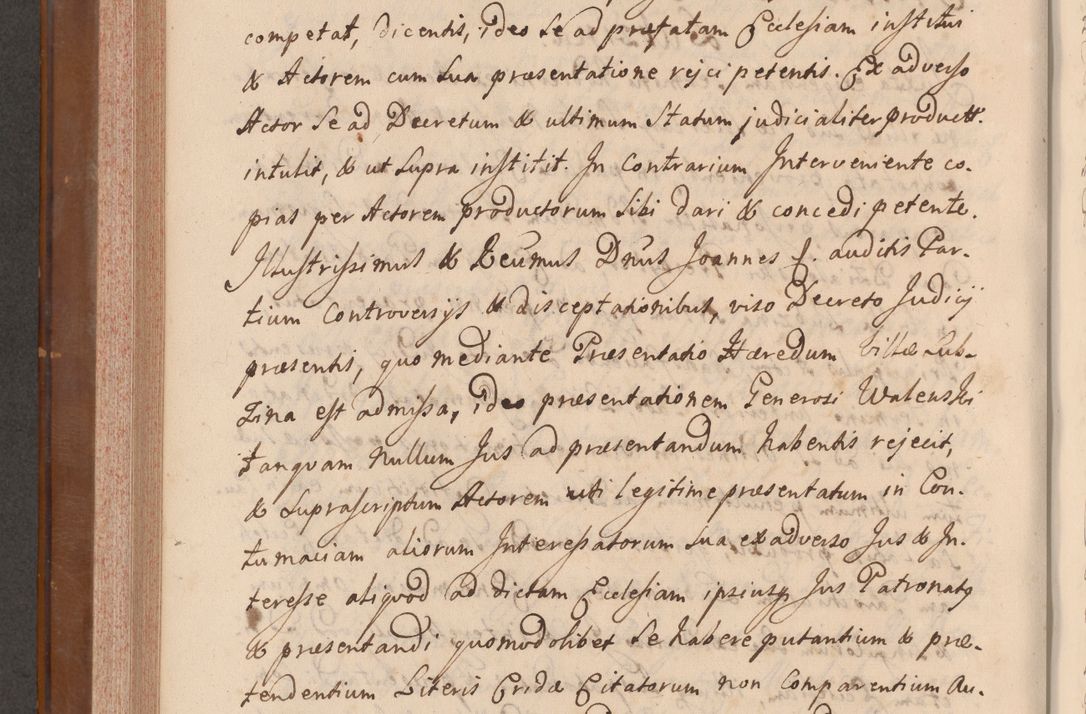 competat, dicentis, ideo se ad præfatam Ecclesiam institui
& Actorem cum sua præsentatione rejci petentis. Ex adverso
Actor se ad Decretum & ultimum statum judicialiter product.
intulit, & ut supra institit. In contrarium Interveniente co-
pias per Actorem productorum sibi dari & concedi petente.
Illustrissimus & Reumus Dnus Joannes f. auditis Par-
tium Controversijs & disceptationibus, viso Decreto Judicij
præsentis, quo mediante Præsentatio Hæredum villæ Lub-
zina est admissa, ideo præsentationem Generosi Walewski
tanquam nullum Jus ad præsentandum habentis rejecit,
& suprascriptum Actorem uti legitime præsentatum in Con-
tumaciam aliorum Interessatorum sua ex adverso Jus & In-
teresse aliquod ad dictam Ecclesiam ipsiusq Jus Patronatq
& præsentandi quomodolibet se habere putantium & præ-
tendentium Literis Cridæ Citatorum non Comparentium Au-